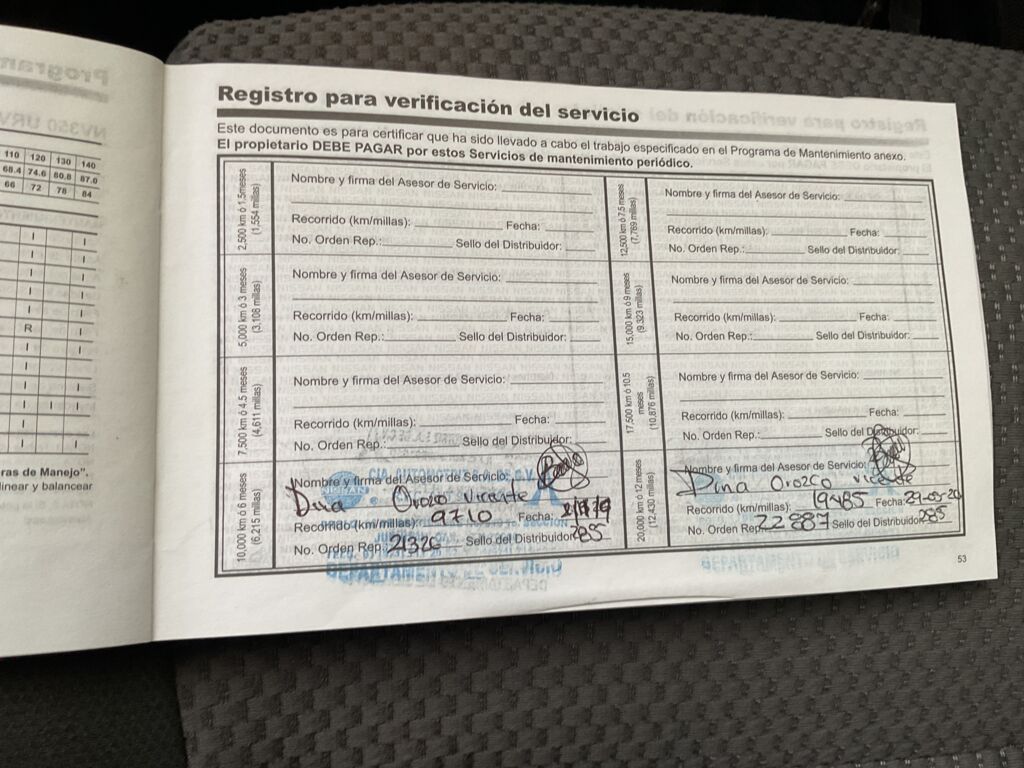 Registro para verificación del servicio
Este documento es para certificar que ha sido llevado a cabo el trabajo especificado en el Programa de Mantenimiento anexo.
El propietario DEBE PAGAR por estos Servicios de mantenimiento periódico.
2,500 km ó 1.5meses
(1,554 millas)
Nombre y firma del Asesor de Servicio:
Recorrido (km/millas): Fecha:
No. Orden Rep.: Sello del Distribuidor:
5,000 km ó 3 meses
(3,108 millas)
Nombre y firma del Asesor de Servicio:
Recorrido (km/millas): Fecha:
No. Orden Rep.: Sello del Distribuidor:
7,500 km ó 4.5 meses
(4,611 millas)
Nombre y firma del Asesor de Servicio:
Recorrido (km/millas): Fecha:
No. Orden Rep.: Sello del Distribuidor:
10,000 km ó 6 meses
(6,215 millas)
Nombre y firma del Asesor de Servicio:
Orozco Vicente
Recorrido (km/millas): 9710 Fecha:
No. Orden Rep. 21326 Sello del Distribuidor: 285
NISSAN
DEPARTAMENTO DE SERVICIO
12,500 km ó 7.5 meses
(7,769 millas)
Nombre y firma del Asesor de Servicio:
Recorrido (km/millas): Fecha:
No. Orden Rep.: Sello del Distribuidor:
15,000 km ó 9 meses
(9,323 millas)
Nombre y firma del Asesor de Servicio:
Recorrido (km/millas): Fecha:
No. Orden Rep.: Sello del Distribuidor:
17,500 km ó 10.5
meses
(10,876 millas)
Nombre y firma del Asesor de Servicio:
Recorrido (km/millas): Fecha:
No. Orden Rep.: Sello del Distribuidor:
20,000 km ó 12 meses
(12,430 millas)
Nombre y firma del Asesor de Servicio:
Dina Orozco Vicente
Recorrido (km/millas): 19485 Fecha:
No. Orden Rep. 22887 Sello del Distribuidor: 285
DEPARTAMENTO DE SERVICIO
53
110 120 130 140
68.4 74.6 80.8 87.0
66 72 78 84
I I
I I
I I
I I
I I
R I
I I
I I
I I I
I I
ras de Manejo".
linear y balancear